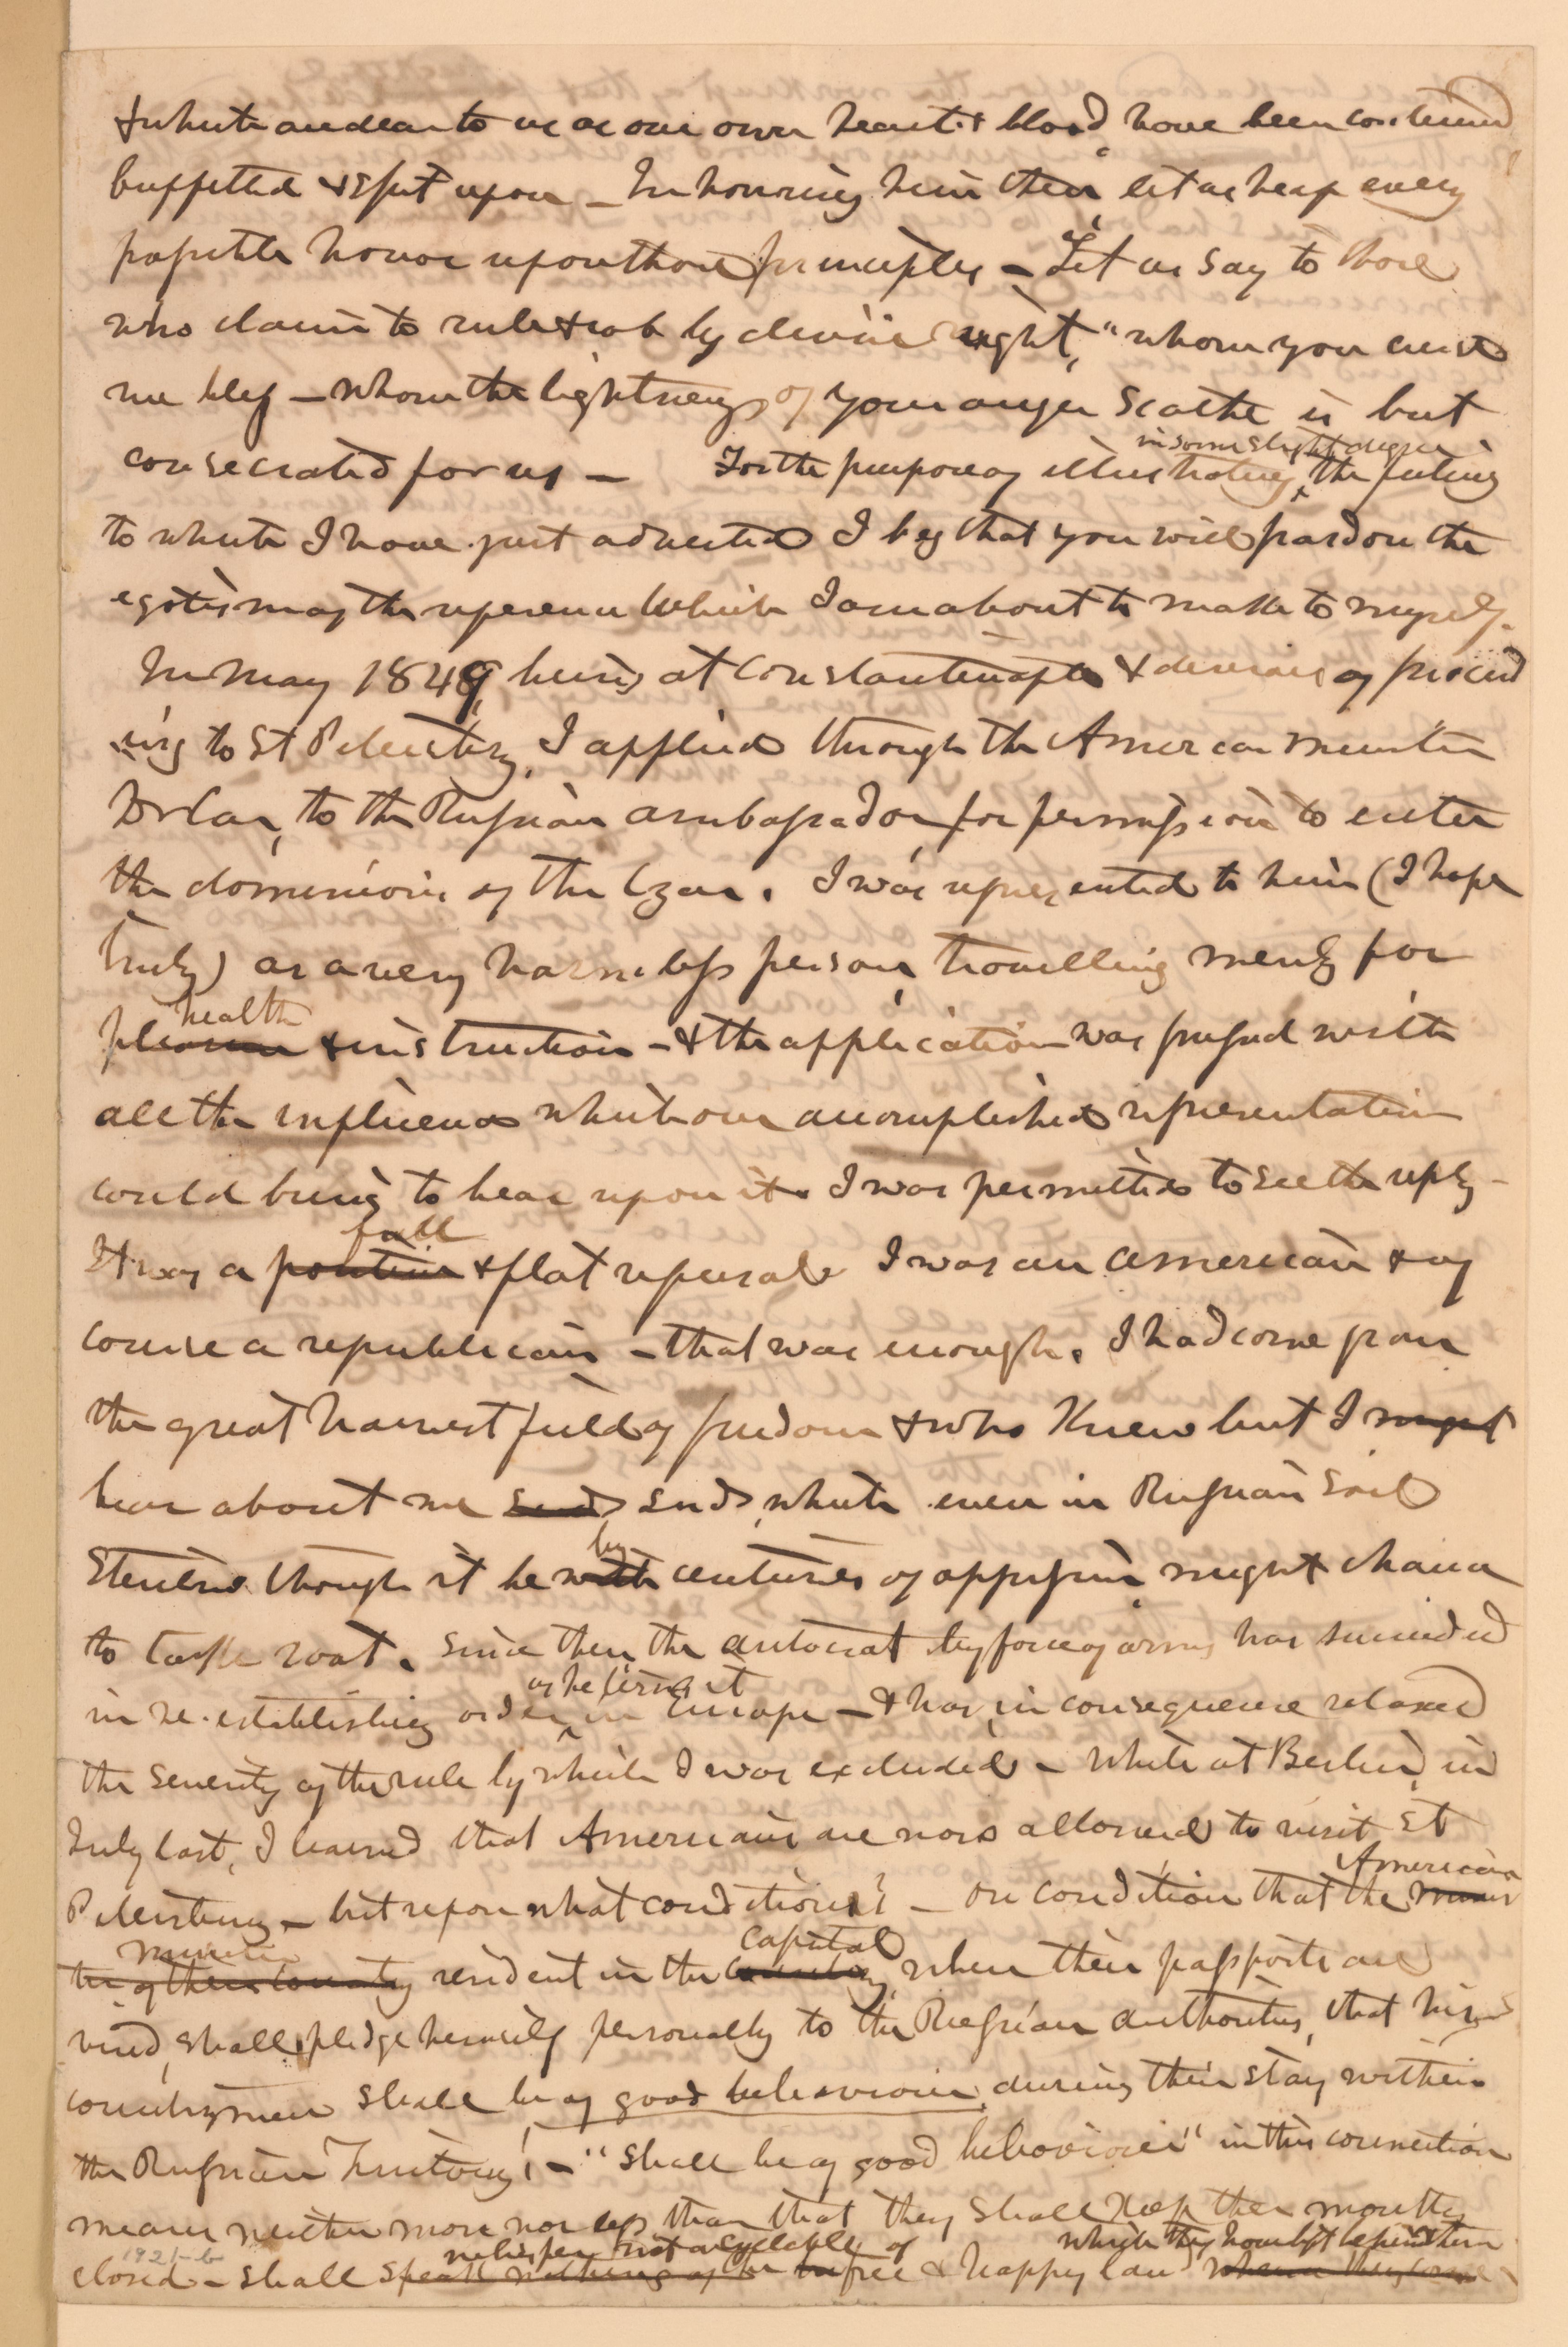 & which are dear to us as our own heart's blood, have been contemned
buffetted & spit upon – In honoring him then, let us heap every
possible honor upon those principles – Let us say to those
who claim to rule & rob by divine right, "whom you curse
we bless – whom the lightnings of your anger scathe is but
consecrated for us – For the purpose of illustrating in some slight degree the feeling
to which I have just adverted I beg that you will pardon the
egotism of the reference which I am about to make to myself.
In May 1849, being at Constantinople & desirous of proceed
ing to St Petersburg, I applied through the American minister
Dr Carr, to the Russian ambassador, for permission to enter
the dominions of the Czar. I was represented to him (I hope
truly) as a very harmless person, travelling merely for
pleasure health & instruction – & the application was pressed with
all the influence which our accomplished representative
could bring to bear upon it. I was permitted to see the reply –
It was a positive full & flat refusal. I was an American & of
course a republican – that was enough. I had come from
the great harvest field of freedom & who knew but I might
bear about me seed, seeds, which even in Russian soil
sterile though it be with by centuries of oppression, might chance
to take root. Since then the autocrat by force of arms, has succeeded
in re-establishing order, as he terms it in Europe – & has, in consequence relaxed
the severity of the rule by which I was excluded – While at Berlin, in
July last, I learned that Americans are now allowed to visit St
Petersburg – but upon what conditions? – On condition that the American minis
ter of their country minister resident in the country capital, when their passports are
vised, shall pledge himself personally to the Russian authorities, that his
countrymen shall be of good behaviour, during their stay within
the Russian Territory! – "Shall be of good behaviour" in this connection
means neither more nor less than that they shall keep their mouths
closed – shall speak nothing of whisper not a syllable of the free & happy land which they have left behind them where they come
1921-b